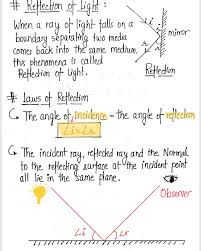 # Reflection of Light :
When a ray of light falls on a
boundary separating two media
comes back into the same medium,
this phenomena is called
Reflection of Light.
i
r
mirror
Reflection
# Laws of Reflection
The angle of incidence = the angle of reflection
∠i = ∠r
The incident ray, reflected ray and the Normal
to the reflecting surface at the incident point
all lie in the same plane.
Observer
∠i ∠r